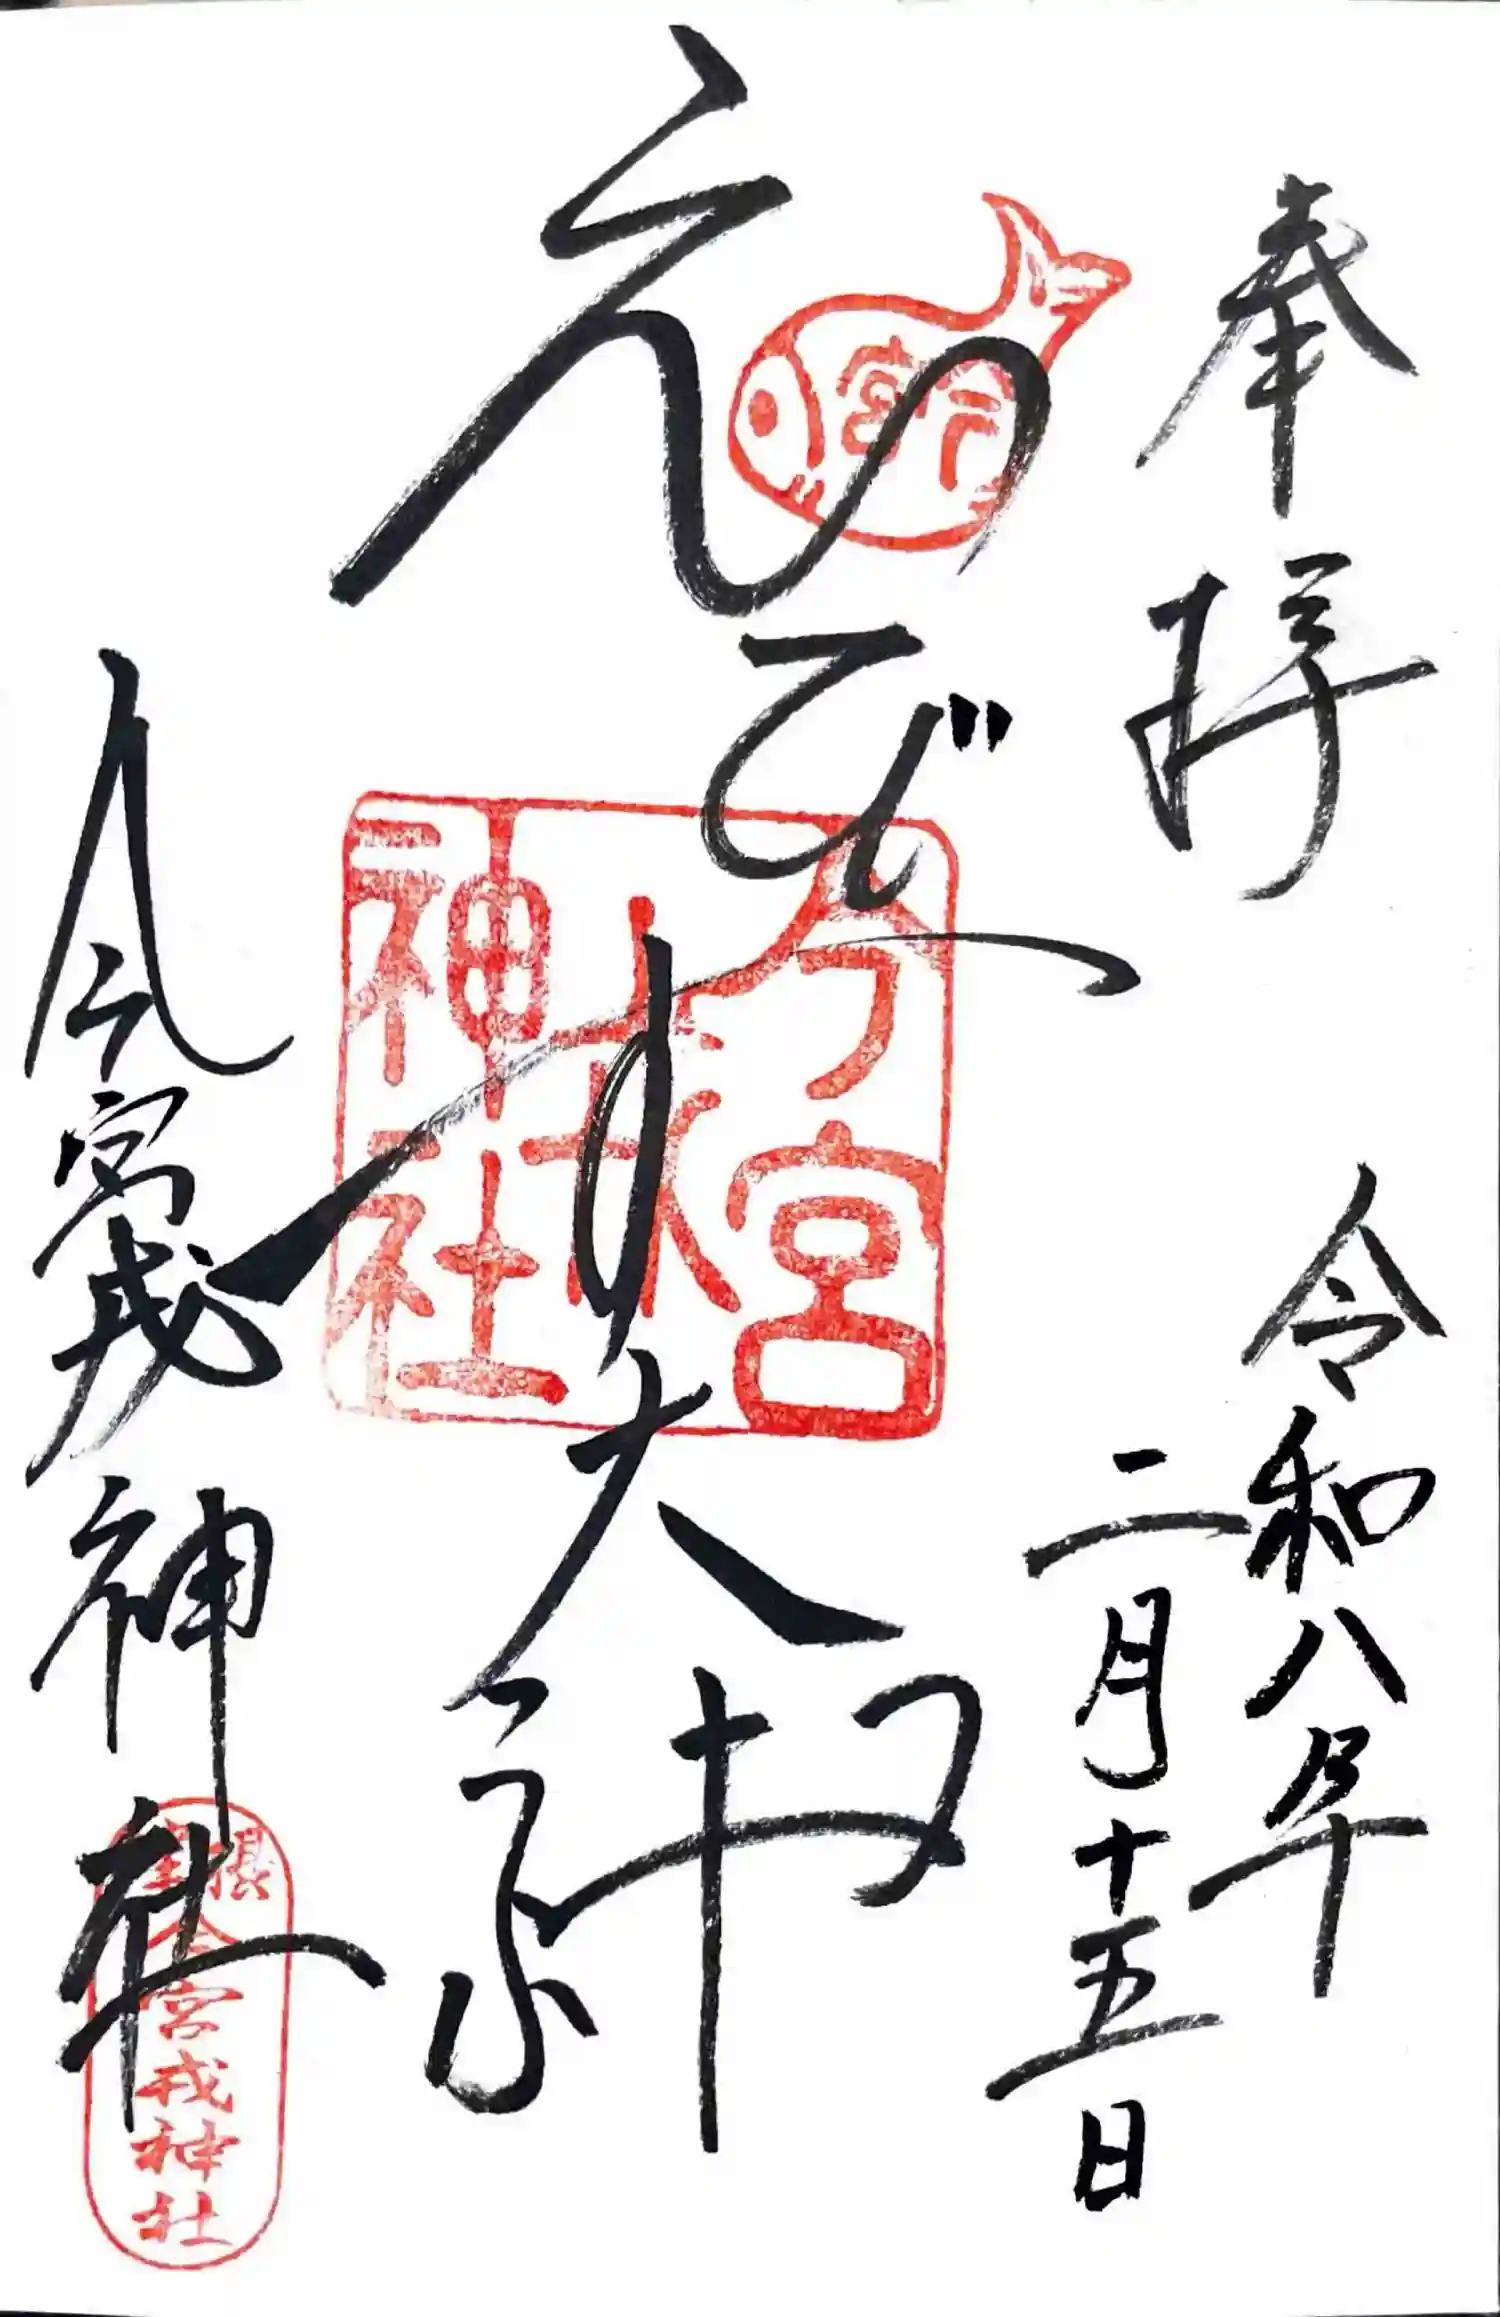 奉拝
令和八年
二月十五日
今宮
えびす大神
今宮
戎
神社
今宮戎神社
今宮戎神社